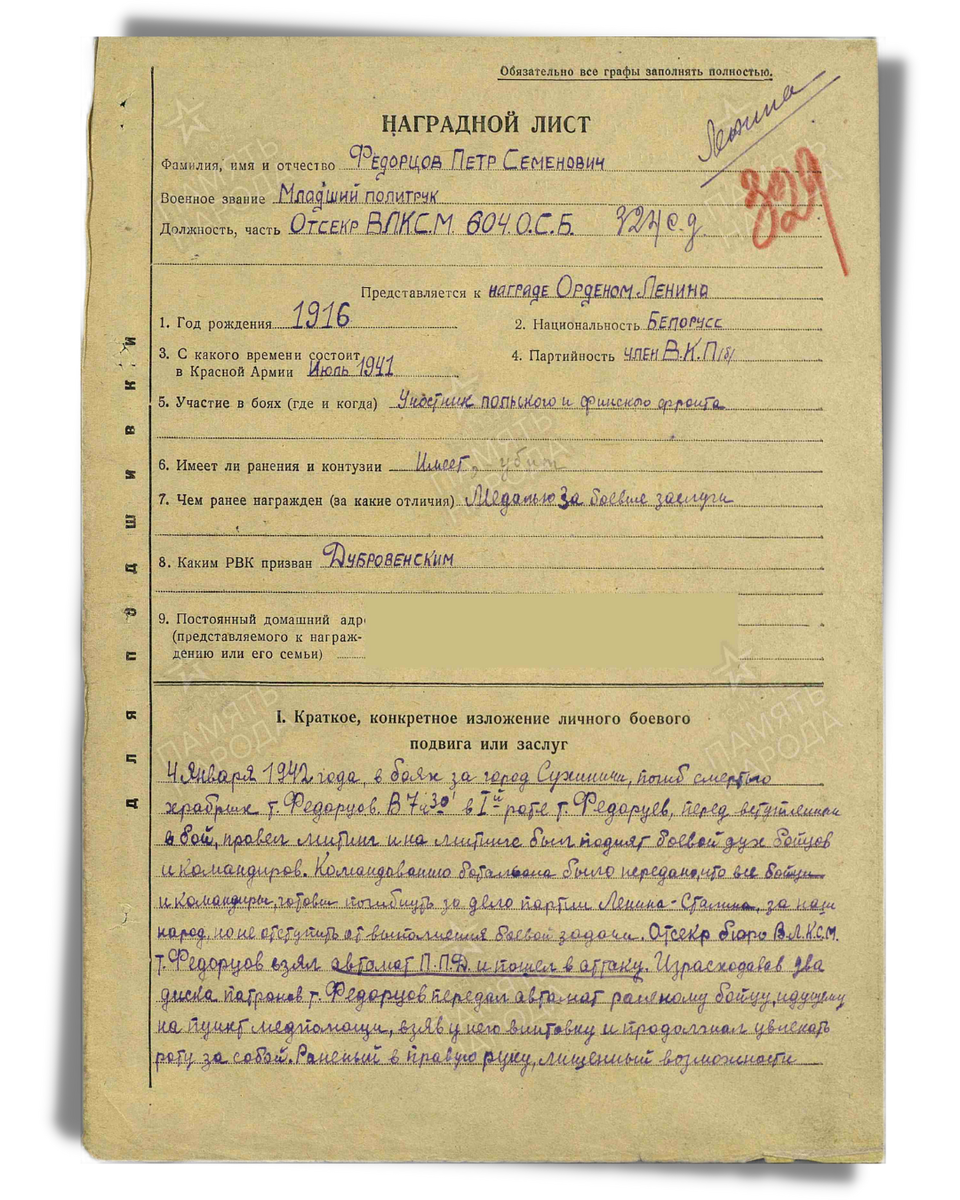 Обязательно все графы заполнять полностью.
Ленина
НАГРАДНОЙ ЛИСТ
329
Фамилия, имя и отчество Федорцов Петр Семенович
Военное звание Младший политрук
Должность, часть Отсекр ВЛКС.М. 604.О.С.Б. 324 с.д.
Представляется к награде Орденом Ленина
1. Год рождения 1916
2. Национальность Белорусс
3. С какого времени состоит
в Красной Армии Июль 1941
4. Партийность член В.К.П/б/
5. Участие в боях (где и когда) Участник польского и финского фронта
6. Имеет ли ранения и контузии Имеет, убит
7. Чем ранее награжден (за какие отличия) Медалью За боевые заслуги
8. Каким РВК призван Дубровенским
9. Постоянный домашний адре
(представляемого к награж-
дению или его семьи)
I. Краткое, конкретное изложение личного боевого
подвига или заслуг
4 Января 1942 года, в боях за город Сухиничи, погиб смертью
храбрых т. Федорцов. В 7ч 30' в Iй роте т. Федорцев, перед вступлением
в бой, провел митинг и на митинге был поднят боевой дух бойцов
и командиров. Командованию батальона было передано, что все бойцы
и командиры, готовы погибнуть за дело партии Ленина-Сталина, за наш
народ, но не отступить от выполнения боевой задачи. Отсекр бюро В.Л.К.С.М.
т. Федорцов взял автомат П.П.Д. и пошел в аттаку. Израсходовав два
диска патронов т. Федорцов передал автомат раненому бойцу, идущему
на пункт медпомощи, взяв у него винтовку и продолжал увлекать
роту за собой. Раненый в правую руку, лишенный возможности
для подшивки
ПАМЯТЬ НАРОДА